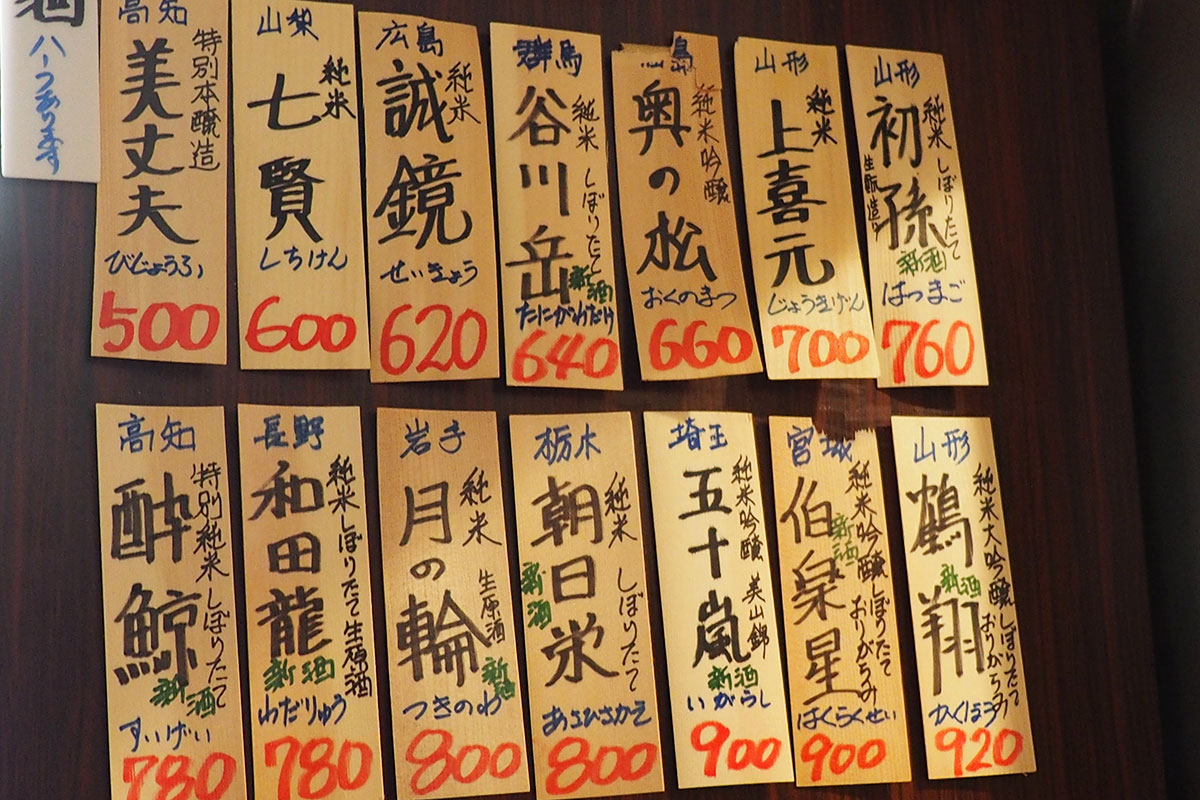 酒
ハーフあります
高知
特別本醸造
美丈夫
びじょうふ
500
山梨
純米
七賢
しちけん
600
広島
純米
誠鏡
せいきょう
620
群馬
純米 しぼりたて
谷川岳
新酒
たにがわだけ
640
島
純米吟醸
奥の松
おくのまつ
660
山形
純米
上喜元
じょうきげん
700
山形
純米 しぼりたて
初孫
生酛造り
新酒
はつまご
760
高知
特別純米 しぼりたて
酔鯨
新酒
すいげい
780
長野
純米しぼりたて生原酒
和田龍
新酒
わだりゅう
780
岩手
純米
生原酒
月の輪
新酒
つきのわ
800
栃木
純米 しぼりたて
朝日栄
新酒
あさひさかえ
800
埼玉
純米吟醸 美山錦
五十嵐
新酒
いがらし
900
宮城
純米吟醸しぼりたて
おりがらみ
伯楽星
新酒
はくらくせい
900
山形
純米大吟醸しぼりたて
おりがらみ
鶴翔
新酒
920